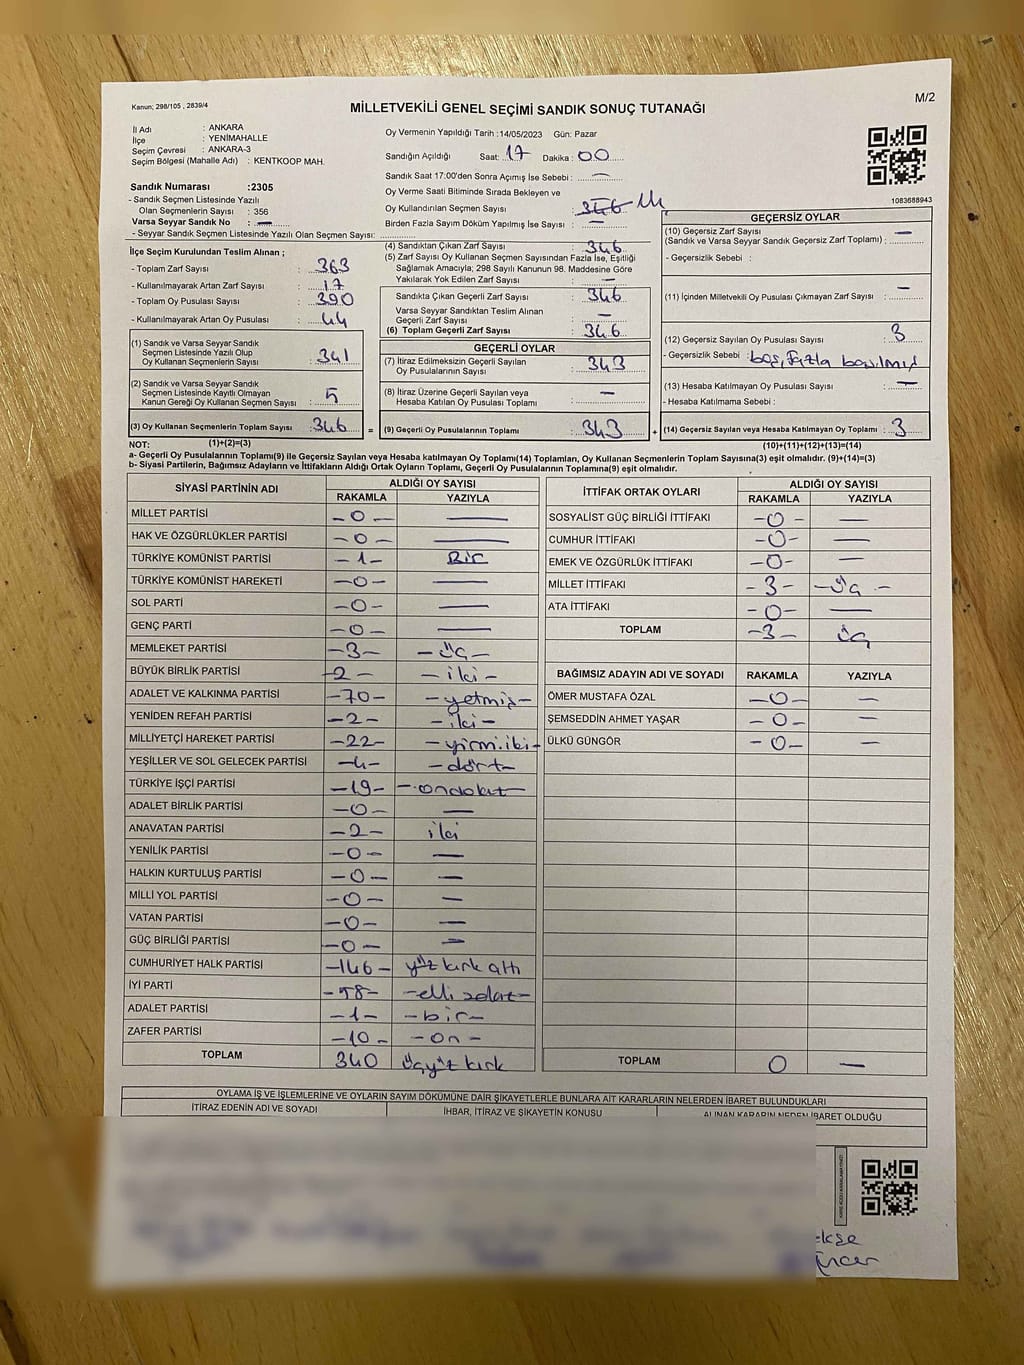 Kanun; 298/105 , 2839/4
MİLLETVEKİLİ GENEL SEÇİMİ SANDIK SONUÇ TUTANAĞI
M/2
İl Adı : ANKARA
İlçe : YENİMAHALLE
Seçim Çevresi : ANKARA-3
Seçim Bölgesi (Mahalle Adı) : KENTKOOP MAH.
Sandık Numarası :2305
- Sandık Seçmen Listesinde Yazılı
Olan Seçmenlerin Sayısı : 356
Varsa Seyyar Sandık No : —
- Seyyar Sandık Seçmen Listesinde Yazılı Olan Seçmen Sayısı:
Oy Vermenin Yapıldığı Tarih :14/05/2023 Gün: Pazar
Sandığın Açıldığı Saat: 17 Dakika : 00
Sandık Saat 17:00'den Sonra Açımış İse Sebebi : —
Oy Verme Saati Bitiminde Sırada Bekleyen ve
Oy Kullandırılan Seçmen Sayısı :
Birden Fazla Sayım Döküm Yapılmış İse Sayısı : —
1083688943
İlçe Seçim Kurulundan Teslim Alınan ;
- Toplam Zarf Sayısı : 363
- Kullanılmayarak Artan Zarf Sayısı : 17
- Toplam Oy Pusulası Sayısı : 390
- Kullanılmayarak Artan Oy Pusulası : 44
(1) Sandık ve Varsa Seyyar Sandık
Seçmen Listesinde Yazılı Olup
Oy Kullanan Seçmenlerin Sayısı : 341
(2) Sandık ve Varsa Seyyar Sandık
Seçmen Listesinde Kayıtlı Olmayan
Kanun Gereği Oy Kullanan Seçmen Sayısı : 5
(3) Oy Kullanan Seçmenlerin Toplam Sayısı : 346 =
(4) Sandıktan Çıkan Zarf Sayısı : 346
(5) Zarf Sayısı Oy Kullanan Seçmen Sayısından Fazla İse, Eşitliği
Sağlamak Amacıyla; 298 Sayılı Kanunun 98. Maddesine Göre
Yakılarak Yok Edilen Zarf Sayısı : —
Sandıkta Çıkan Geçerli Zarf Sayısı : 346
Varsa Seyyar Sandıktan Teslim Alınan
Geçerli Zarf Sayısı : —
(6) Toplam Geçerli Zarf Sayısı : 346
GEÇERLİ OYLAR
(7) İtiraz Edilmeksizin Geçerli Sayılan
Oy Pusulalarının Sayısı : 343
(8) İtiraz Üzerine Geçerli Sayılan veya
Hesaba Katılan Oy Pusulası Toplamı : —
(9) Geçerli Oy Pusulalarının Toplamı : 343 +
GEÇERSİZ OYLAR
(10) Geçersiz Zarf Sayısı
(Sandık ve Varsa Seyyar Sandık Geçersiz Zarf Toplamı) : —
- Geçersizlik Sebebi :
(11) İçinden Milletvekili Oy Pusulası Çıkmayan Zarf Sayısı : —
(12) Geçersiz Sayılan Oy Pusulası Sayısı : 3
- Geçersizlik Sebebi : boş, fazla basılmış
(13) Hesaba Katılmayan Oy Pusulası Sayısı : —
- Hesaba Katılmama Sebebi :
(14) Geçersiz Sayılan veya Hesaba Katılmayan Oy Toplamı : 3
NOT: (1)+(2)=(3) (10)+(11)+(12)+(13)=(14)
a- Geçerli Oy Pusulalarının Toplamı(9) ile Geçersiz Sayılan veya hesaba katılmayan Oy Toplamı(14) Toplamları, Oy Kullanan Seçmenlerin Toplam Sayısına(3) eşit olmalıdır. (9)+(14)=(3)
b- Siyasi Partilerin, Bağımsız Adayların ve İttifakların Aldığı Ortak Oyların Toplamı, Geçerli Oy Pusulalarının Toplamına(9) eşit olmalıdır.
SİYASİ PARTİNİN ADI ALDIĞI OY SAYISI
RAKAMLA YAZIYLA
MİLLET PARTİSİ -0- —
HAK VE ÖZGÜRLÜKLER PARTİSİ -0- —
TÜRKİYE KOMÜNİST PARTİSİ -1- Bir
TÜRKİYE KOMÜNİST HAREKETİ -0- —
SOL PARTİ -0- —
GENÇ PARTİ -0- —
MEMLEKET PARTİSİ -3- -üç-
BÜYÜK BİRLİK PARTİSİ -2- -iki-
ADALET VE KALKINMA PARTİSİ -70- -yetmiş-
YENİDEN REFAH PARTİSİ -2- -iki-
MİLLİYETÇİ HAREKET PARTİSİ -22- -yirmi iki-
YEŞİLLER VE SOL GELECEK PARTİSİ -4- -dört-
TÜRKİYE İŞÇİ PARTİSİ -19- -ondokuz-
ADALET BİRLİK PARTİSİ -0- —
ANAVATAN PARTİSİ -2- iki
YENİLİK PARTİSİ -0- —
HALKIN KURTULUŞ PARTİSİ -0- —
MİLLİ YOL PARTİSİ -0- —
VATAN PARTİSİ -0- —
GÜÇ BİRLİĞİ PARTİSİ -0- —
CUMHURİYET HALK PARTİSİ -146- yüz kırk altı
İYİ PARTİ -58- -elli sekiz-
ADALET PARTİSİ -1- -bir-
ZAFER PARTİSİ -10- -on-
TOPLAM 340 üçyüz kırk
İTTİFAK ORTAK OYLARI ALDIĞI OY SAYISI
RAKAMLA YAZIYLA
SOSYALİST GÜÇ BİRLİĞİ İTTİFAKI -0- —
CUMHUR İTTİFAKI -0- —
EMEK VE ÖZGÜRLÜK İTTİFAKI -0- —
MİLLET İTTİFAKI -3- -üç-
ATA İTTİFAKI -0- —
TOPLAM -3- üç
BAĞIMSIZ ADAYIN ADI VE SOYADI RAKAMLA YAZIYLA
ÖMER MUSTAFA ÖZAL -0- —
ŞEMSEDDİN AHMET YAŞAR -0- —
ÜLKÜ GÜNGÖR -0- —
TOPLAM 0 —
OYLAMA İŞ VE İŞLEMLERİNE VE OYLARIN SAYIM DÖKÜMÜNE DAİR ŞİKAYETLERLE BUNLARA AİT KARARLARIN NELERDEN İBARET BULUNDUKLARI
İTİRAZ EDENİN ADI VE SOYADI İHBAR, İTİRAZ VE ŞİKAYETİN KONUSU ALINAN KARARIN NEDEN İBARET OLDUĞU